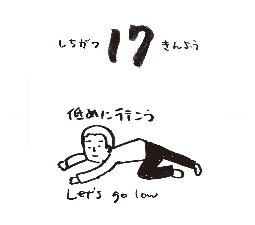 しちがつ 17 きんよう
低めに行こう
Let's go low